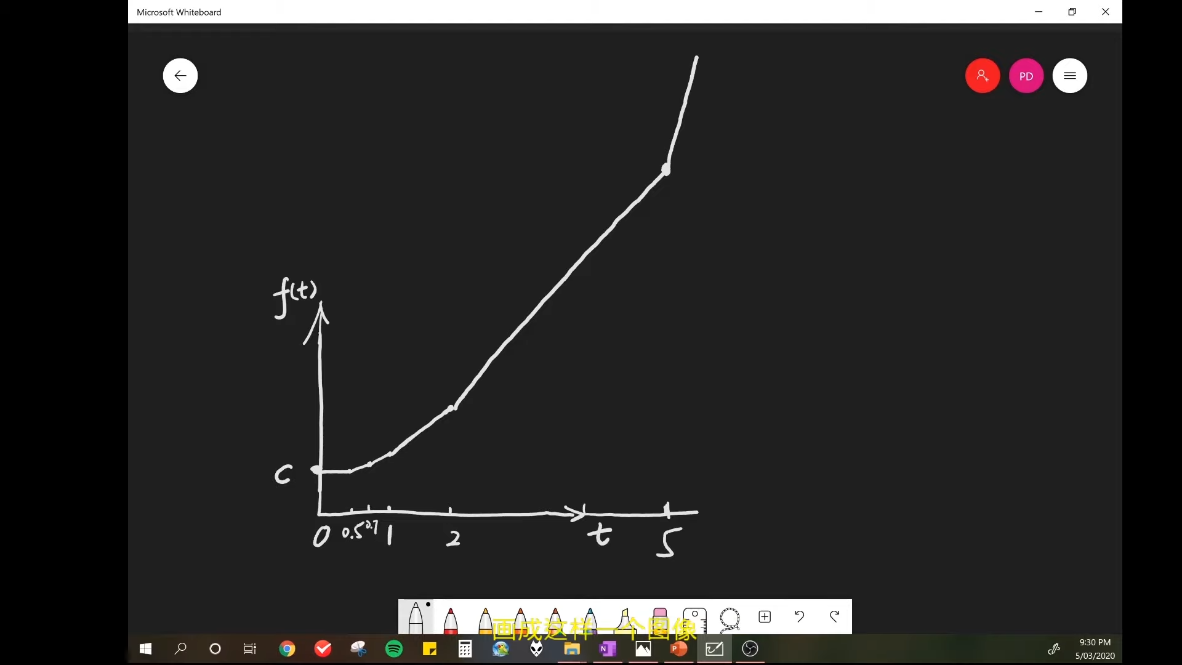 Microsoft Whiteboard
PD
f(t)
C
0 0.5 0.7 1 2 t 5
画成这样一个图像
9:30 PM
5/03/2020